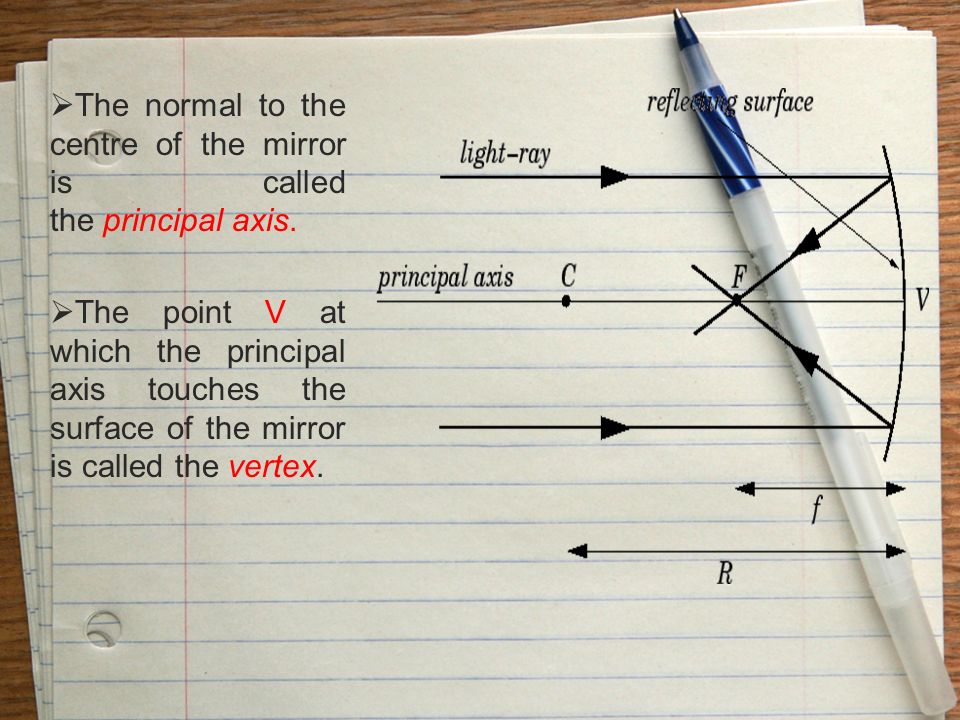 ➢The normal to the
centre of the mirror
is called
the principal axis.
➢The point V at
which the principal
axis touches the
surface of the mirror
is called the vertex.
reflecting surface
light-ray
principal axis
C
F
V
f
R